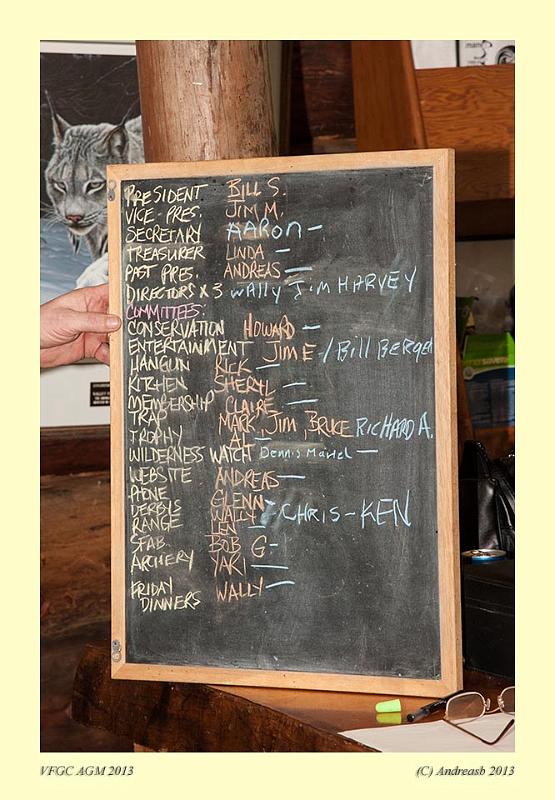 PRESIDENT BILL S.
VICE-PRES. JIM M.
SECRETARY AARON -
TREASURER LINDA -
PAST PRES. ANDREAS -
DIRECTORS X 3 WALLY JIM HARVEY
COMMITTEES:
CONSERVATION HOWARD -
ENTERTAINMENT JIM E -/Bill BERGEN
HANGUN RICK -
KITCHEN SHERYL -
MEMBERSHIP CLAIRE -
TRAP MARK, JIM, BRUCE RICHARD A.
TROPHY AL -
WILDERNESS WATCH Dennis -
WEBSITE ANDREAS -
PHONE GLENN
DERBIS WALLY > CHRIS - KEN
RANGE LEN -
SFAB BOB G -
ARCHERY YAKI -
FRIDAY
DINNERS WALLY -
VFGC AGM 2013
(C) Andreasb 2013